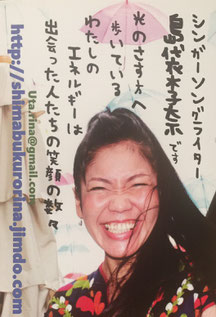 シンガーソングライター
島袋 です
光のさす方へ
歩いている
わたしの
エネルギーは
出会った人たちの笑顔の数々
Uta.rina@gmail.com
http://shimabukurorina.jimdo.com